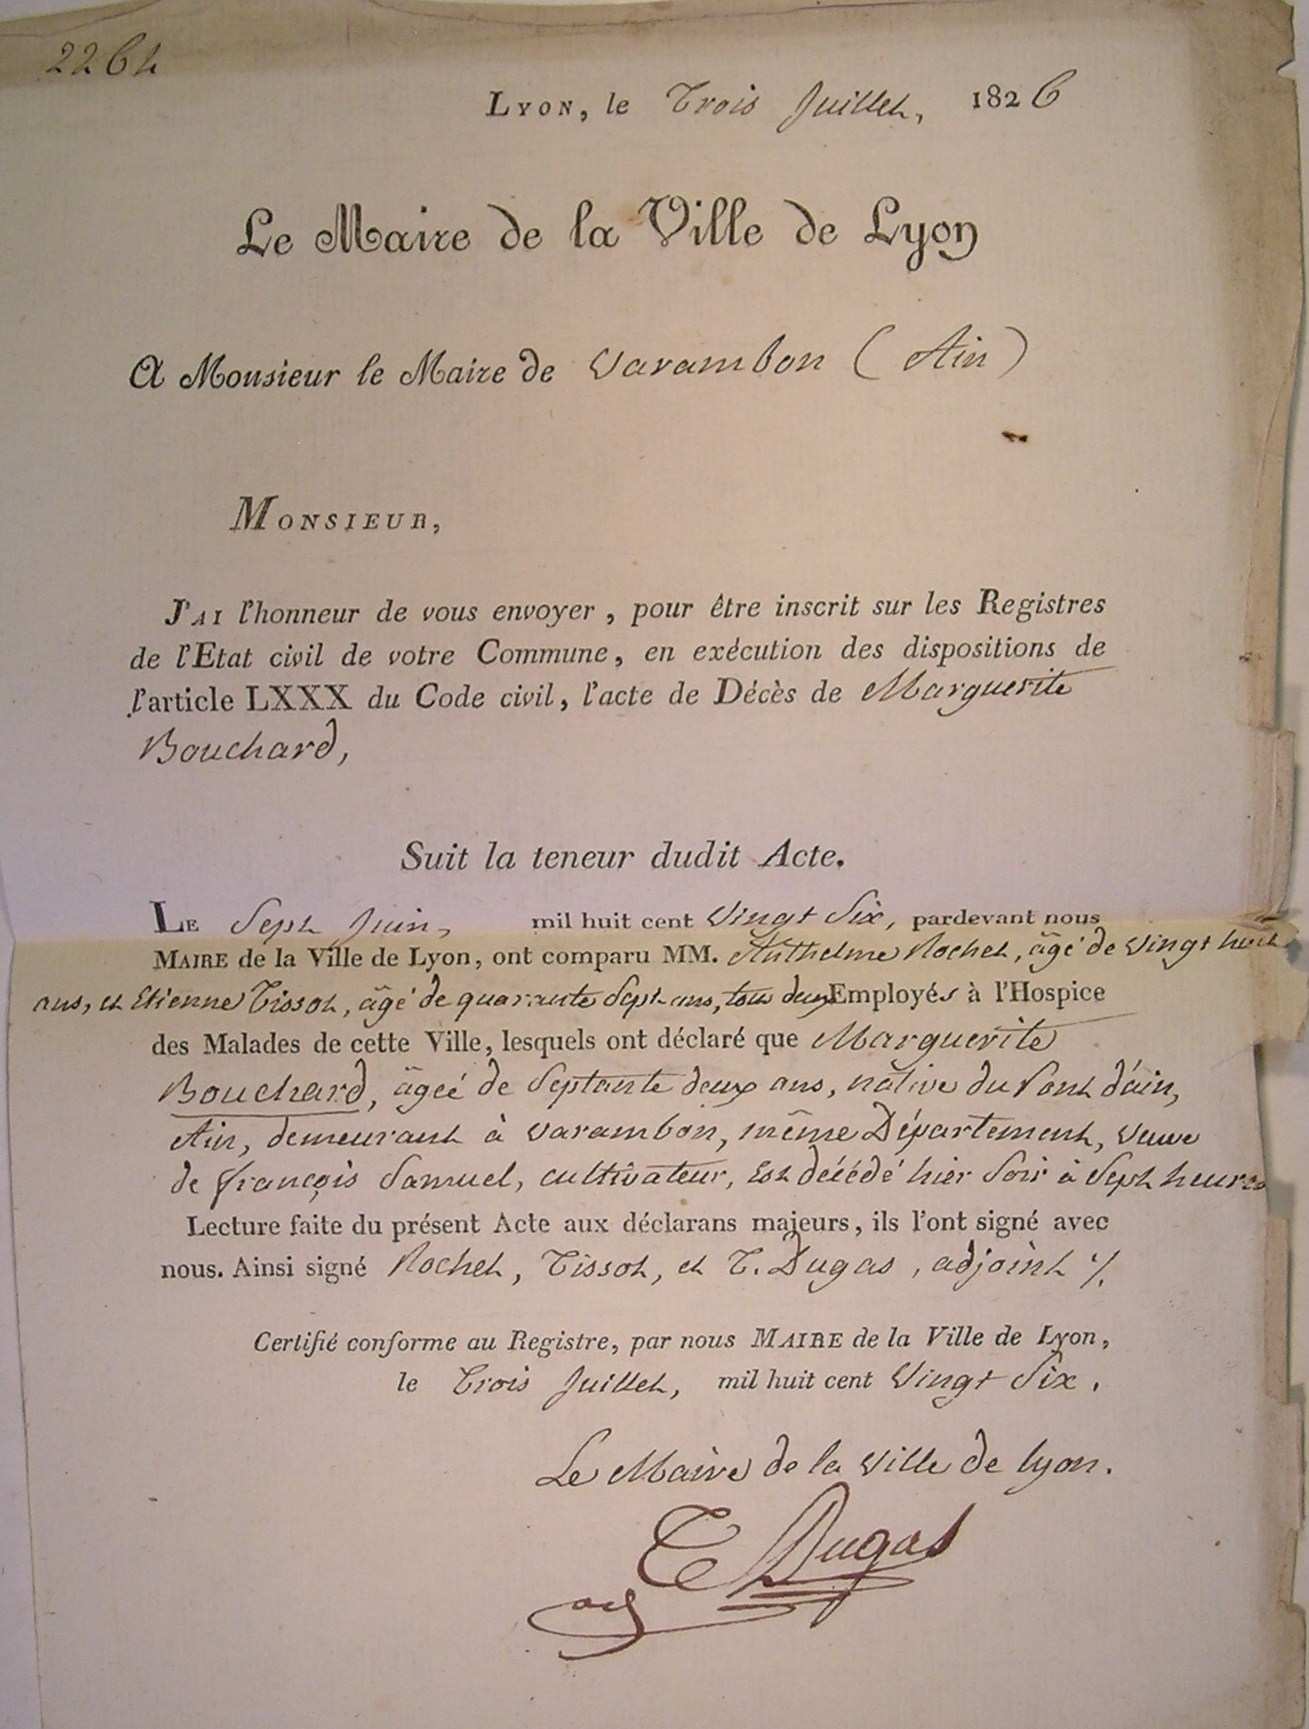 2264
Lyon, le Trois Juillet, 1826
Le Maire de la Ville de Lyon
A Monsieur le Maire de Varambon (Ain)
Monsieur,
J'ai l'honneur de vous envoyer, pour être inscrit sur les Registres
de l'Etat civil de votre Commune, en exécution des dispositions de
l'article LXXX du Code civil, l'acte de Décès de Marguerite
Bouchard,
Suit la teneur dudit Acte.
Le Sept Juin, mil huit cent Vingt Six, pardevant nous
Maire de la Ville de Lyon, ont comparu MM. Anthelme Rochet, âgé de vingt huit
ans, et Etienne Tissot, âgé de quarante Sept ans, tous deux Employés à l'Hospice
des Malades de cette Ville, lesquels ont déclaré que Marguerite
Bouchard, âgeé de Septante deux ans, native du Pont d'ain,
Ain, demeurant à Varambon, même Département, veuve
de françois Samuel, cultivateur, Est décédé hier Soir à Sept heures
Lecture faite du présent Acte aux déclarans majeurs, ils l'ont signé avec
nous. Ainsi signé Rochet, Tissot, et T. Dugas, adjoint
Certifié conforme au Registre, par nous Maire de la Ville de Lyon,
le Trois Juillet, mil huit cent Vingt Six.
Le Maire de la Ville de lyon.
T Dugas
adj